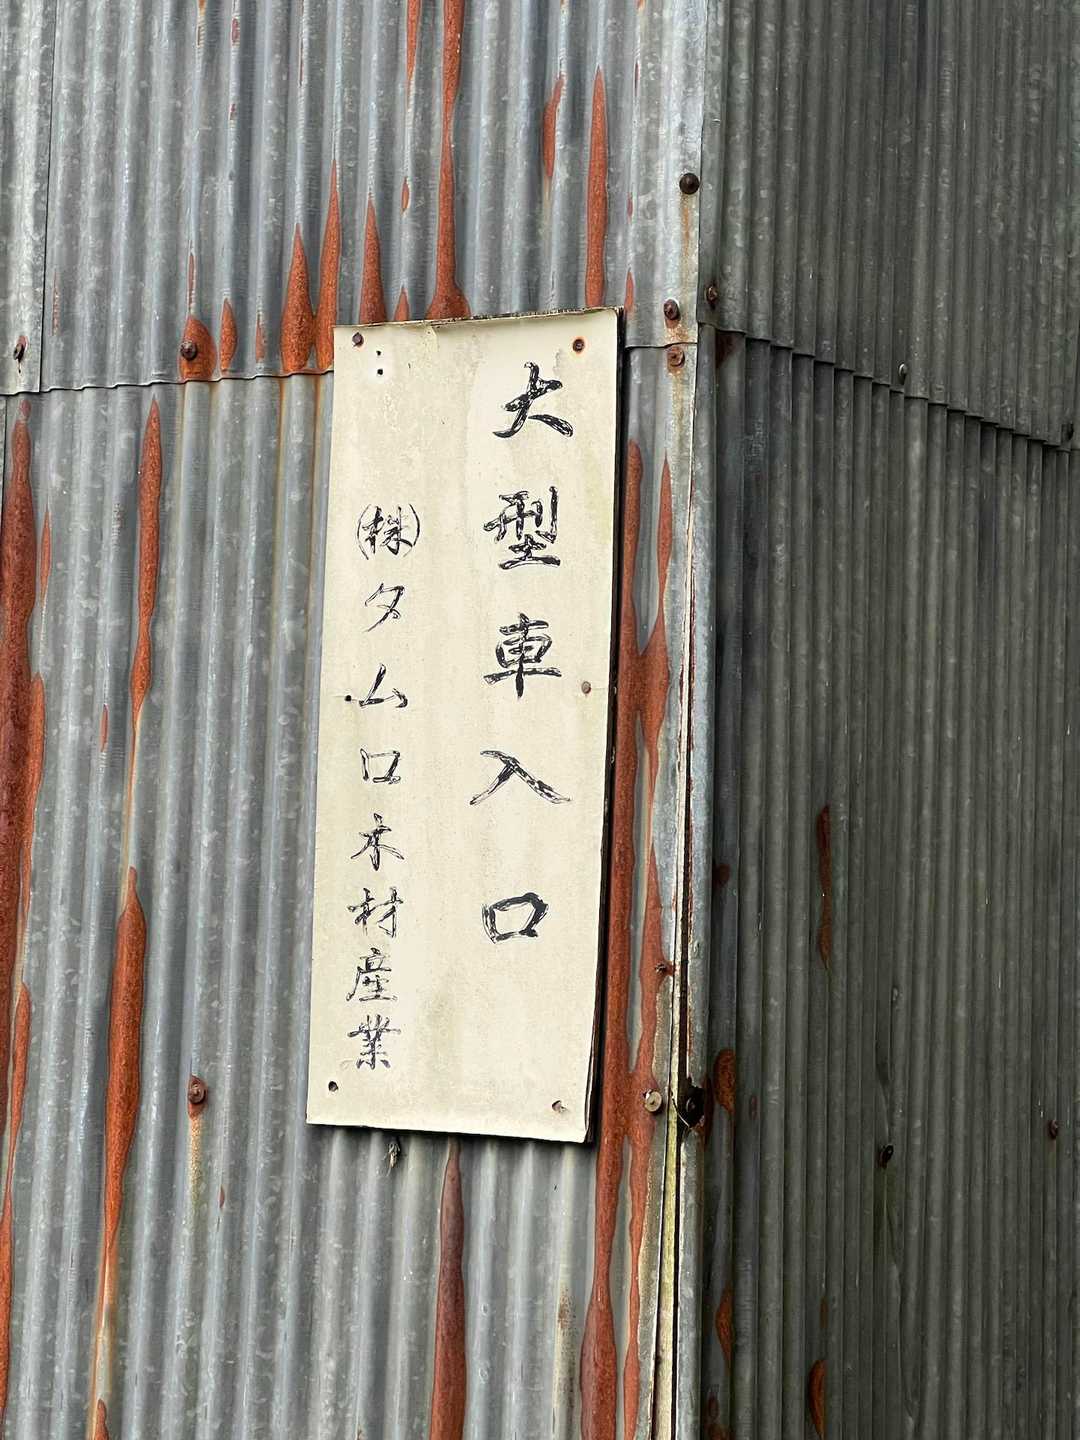 大型車入口
㈱タムロ木材産業